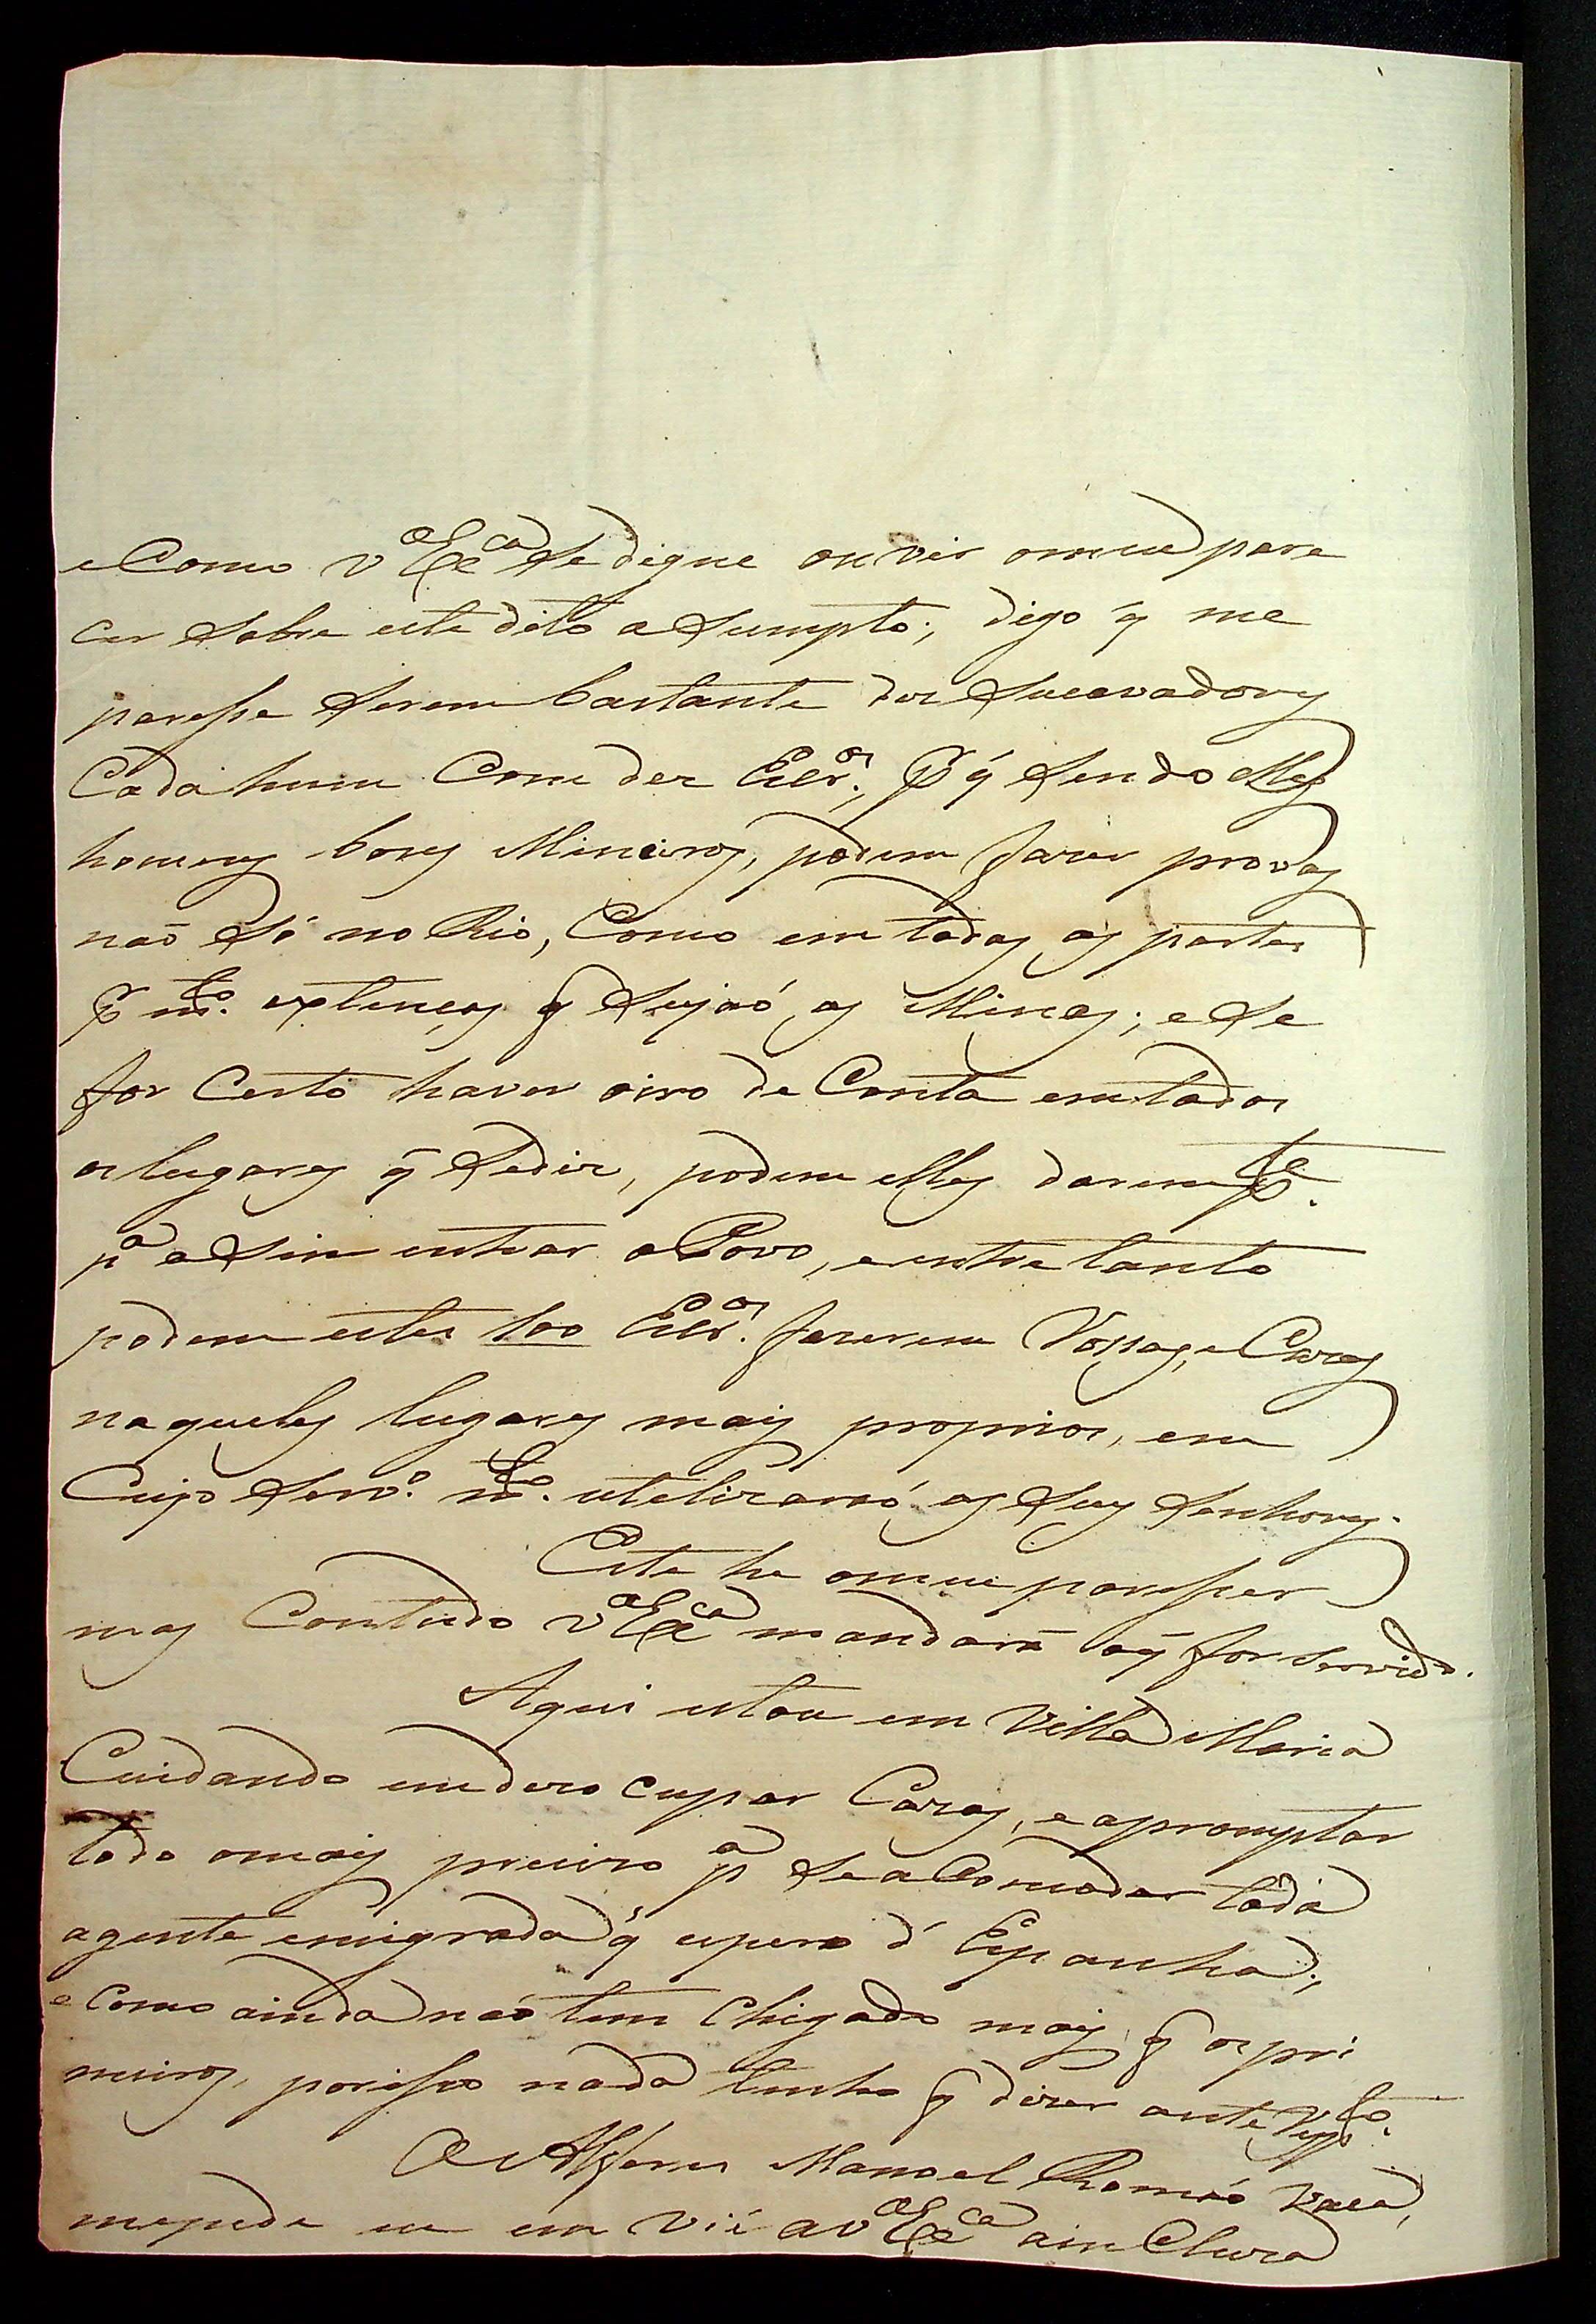 e Como V.ª Ex.ca Se digne ouvir o meu pare
cer Sobre este dito aSumpto; digo q̃ me
paresse Serem bastante dez Sucavadores
Cada hum Com dez Escr.os, p.r q̃ Sendo elles
homens bons Mineiros, podem fazer provas
naõ Só no Rio, Como em todas as partes
p.r m.to extencas q̃ Sejaó as Minas; e Se
for Certo haver oiro de Conta em todos
os lugares q̃ Sediz, podem elles darem p.te
p.ª aSim entrar o Povo, e entre tanto
podem estes 100 Escr.os fazerem Rossas, e Cazas
naqueles lugares mais proprios, em
Cujo Serv.º m.to utelizaraó os Seus Senhores.
Este he o meu paresser
mas Contudo V.ª Ex.ca mandará o q̃ for Servido.
Aqui estou em Villa Maria
Cuidando em dezocupar Cazas, e apromptar
todo o mais precizo p.ª Se aComodar toda
agente emigrada q̃ espero d' Espanha;
e Como ainda naó tem Chegado mais q̃ os pri
meiros, porisso nada tenho q̃ dizer a este resp.to.
O Alferes Manoel Romaó
me pede eu em vie a V.ª Ex.ca a incluza